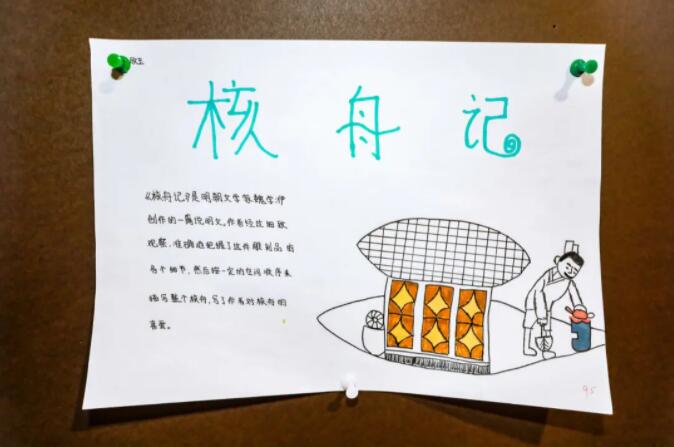 核舟记
《核舟记》是明朝文学家魏学洢
创作的一篇说明文。作者经过细致
观察,准确地把握了这件雕刻品的
各个细节,然后按一定的空间顺序来
描写整个核舟,写了作者对核舟的
喜爱。
95